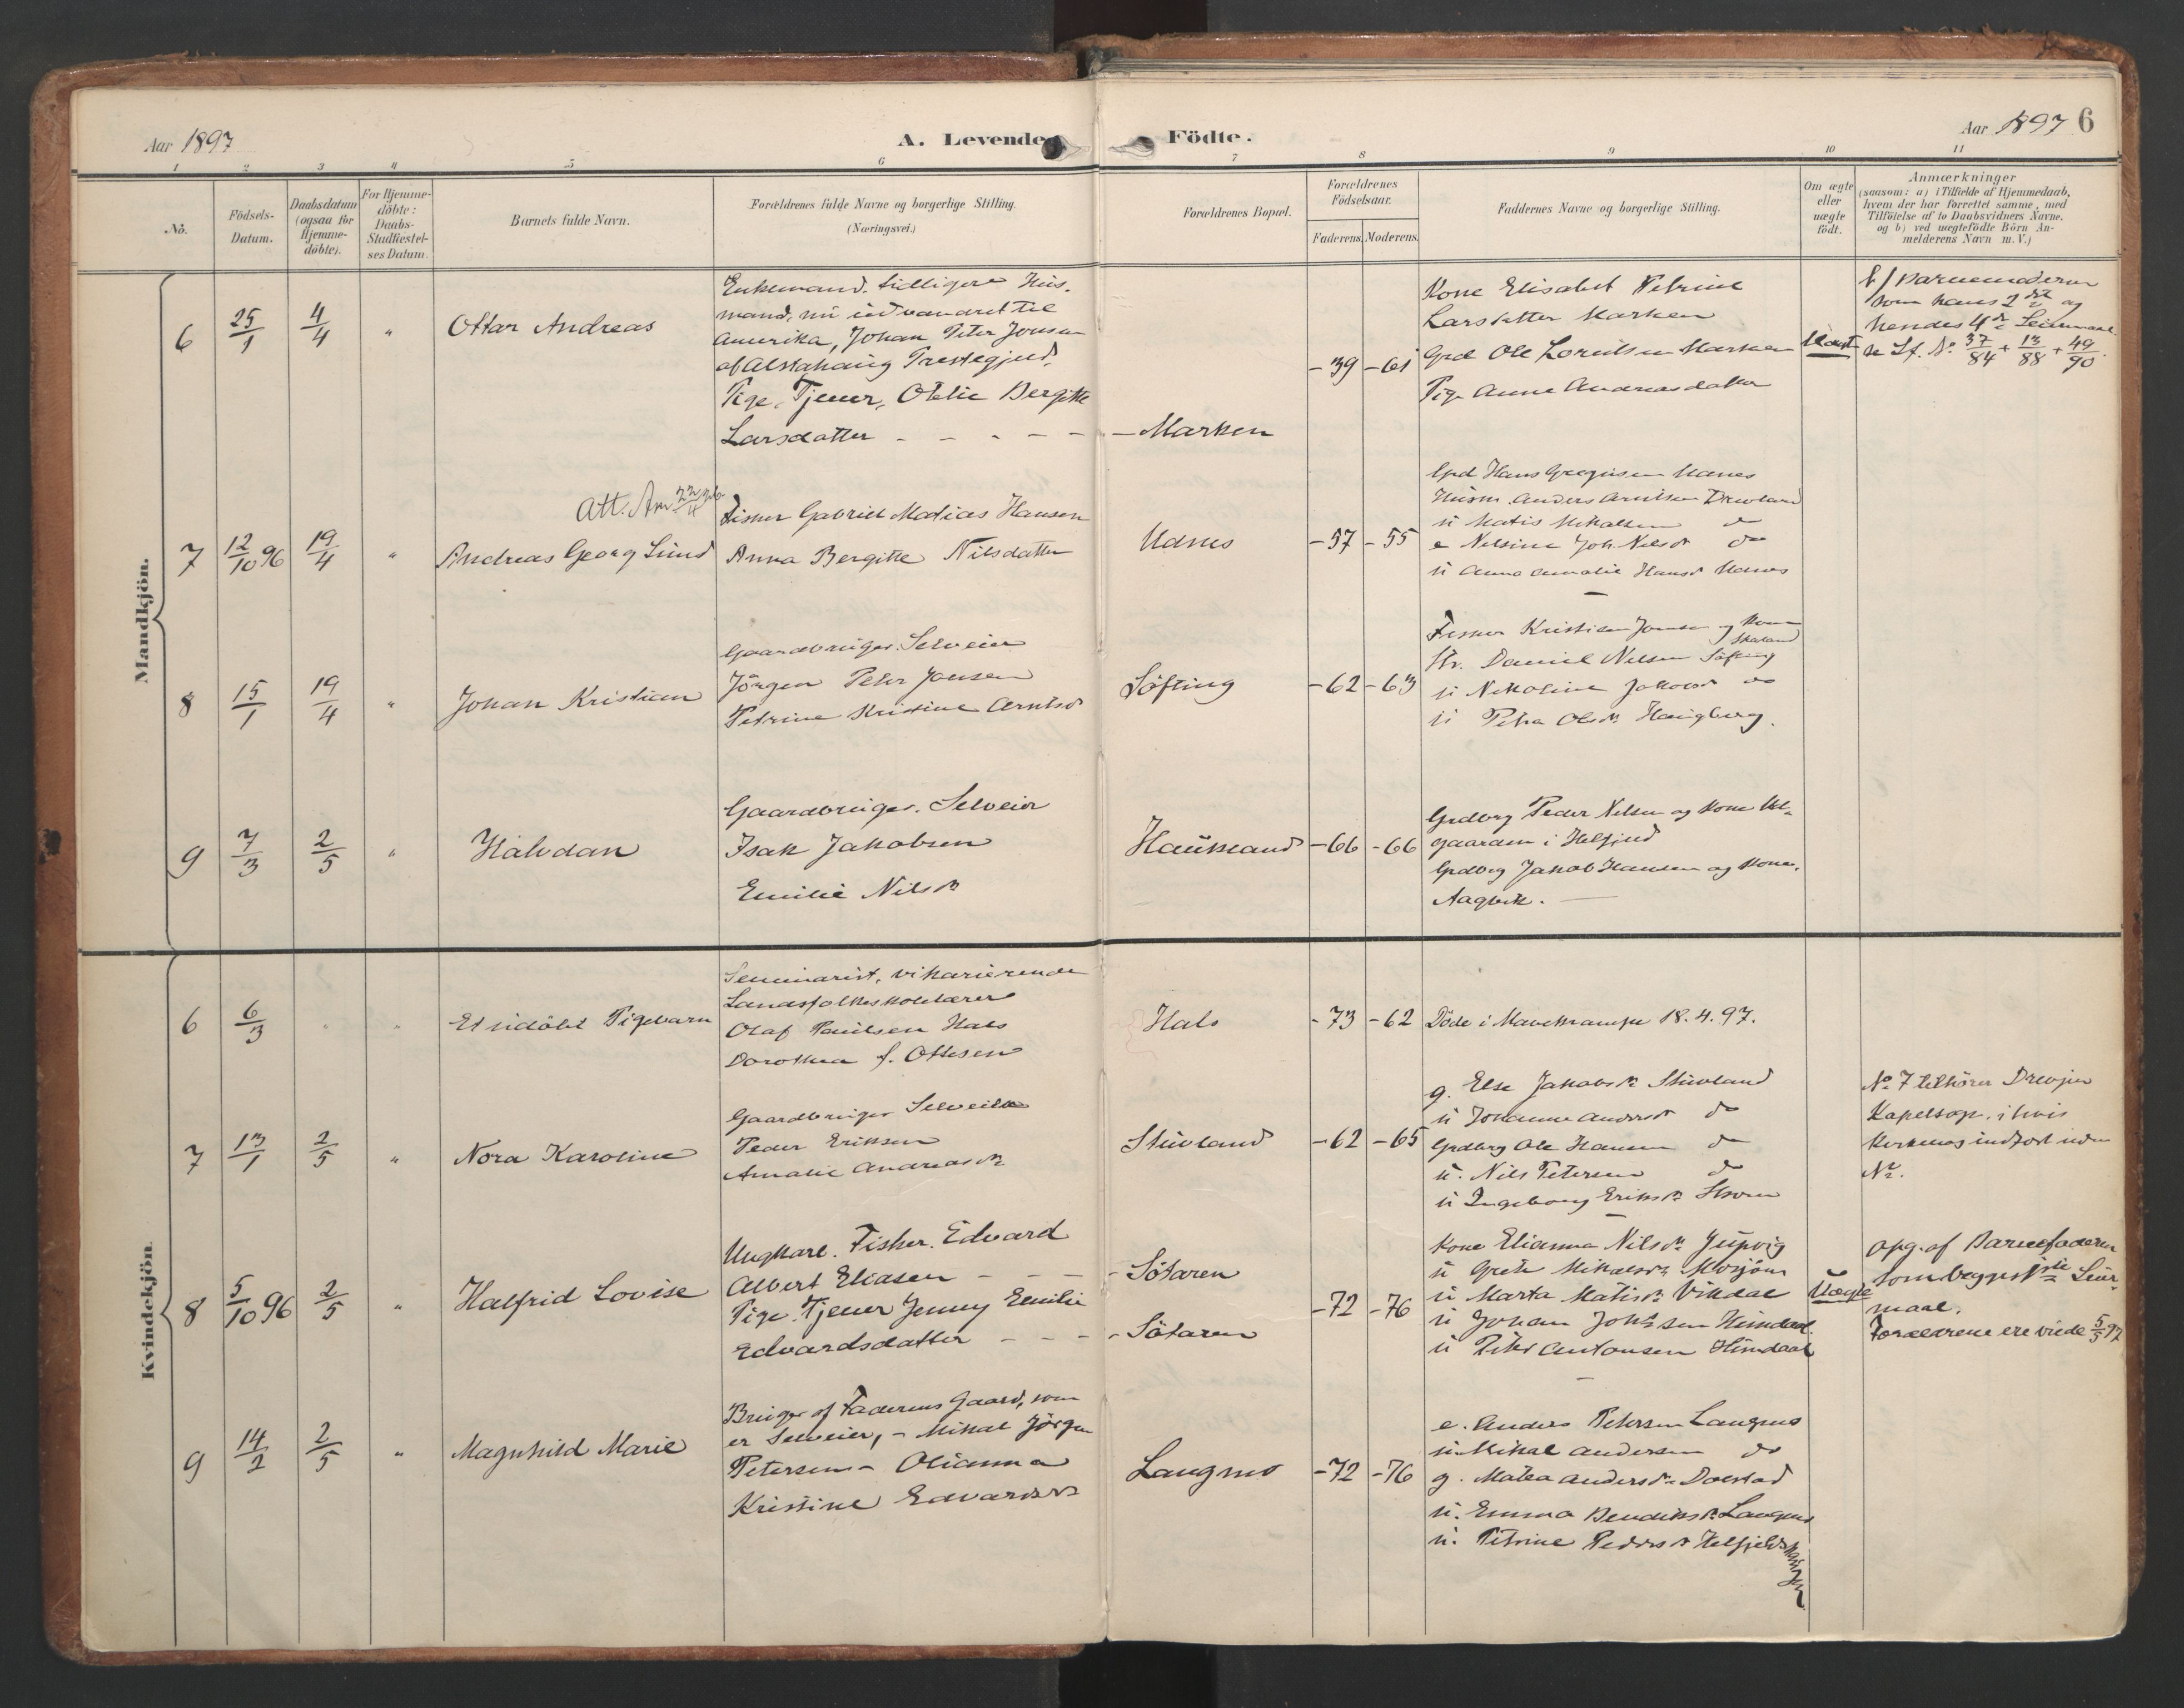 Aar 1897
A. Levende Födte.
Aar 1897 6
1 2 3 4 5 6 7 8 9 10 11
No.
Födsels-
Datum.
Daabsdatum
(ogsaa for
Hjemme-
döbte).
For Hjemme-
döbte:
Daabs-
Stadfæstel-
ses Datum.
Barnets fulde Navn.
Forældrenes fulde Navne og borgerlige Stilling.
(Næringsvei.)
Forældrenes Bopæl.
Forældrenes
Födselsaar.
Faderens. Moderens.
Faddernes Navne og borgerlige Stilling.
Om ægte
eller
uægte
födt.
Anmærkninger
(saasom: a) i Tilfælde af Hjemmedaab,
hvem der har forrettet samme, med
Tilföielse af to Daabsvidners Navne.
og b) ved uægtefödte Börn An-
melderens Navn m. V.)
Mandkjön.
6 25/1 4/4 " Ottar Andreas
Enkemand. tidligere Hus-
mand, nu udvandret til
Amerika, Johan Peter Jonsen
af Alstahaug Prestegjeld.
Pige, Tjener, Otelie Bergitte
Larsdatter - - - - -
Marken
-39 -61
Kone Elisabet Petrine
Larsdatter Marken
Grd Ole Marken
Pige Anne Andreasdatter
b/ Barnemoderen
som hans 2det og
hendes 4de Leiermaal
se Lf. No 37/84 + 13/88 + 49/90.
Att. Am
7 12/10 96 19/4 " Andreas Georg Lund
Fisker Gabriel Matias Hansen
Anna Bergitte Nilsdatter
Udnes
-57 -55
Grd Hans
Husm. Anders Arntsen Drevland
u Matis Mikalsen do
e Nilsine Joh. Nilsd do
u Anna Amalie Hansd
8 15/1 19/4 " Johan Kristian
Gaardbruger. Selveier
Jörgen Peter Jonsen
Petrine Kristine Arntsd
Söfting
-62 -63
Fisker Kristian Jonsen og Kone
Skaland
Str. Daniel Nilsen Söfting
u Nikoline Jakobsd do
u Petra Olsdr Haugberg.
9 7/3 2/5 " Halvdan
Gaardbruger. Selveier
Isak Jakobsen
Emilie Nilsdr
Haukland
-66 -66
Grdbrg Peder Nilsen og Kone
gaarden i Helfjeld
Grdbrg Jakob Hansen og Kone.
Aagvik.
Kvindekjön.
6 6/3 " " Et udöbt Pigebarn
Seminarist, vikarierende
Landsfolkeskolelærer
Olaf Paulsen Hals
Dorothea f. Ottesen
Hals
-73 -62
Döde i Mavekrampe 18.4.97.
7 13/1 2/5 " Nora Karoline
Gaardbruger Selveier
Peder Eriksen
Amalie Andreasdr
Stuvland
-62 -65
g. Else Jakobsdr Stuvland
u Johanne Andersdr do
Grdbrg Ole Hansen do
u. Nils Petersen do
u Ingeborg Eriksdr
No 7 tilhörer Drevjen
Kapelsogn, i hvis
Kirkebog indfört uden
No.
8 5/10 96 2/5 " Halfrid Lovise
Ungkarl. Fisker. Edvard
Albert Eliasen - - -
Pige. Tjener Jenny Emilie
Edvardsdatter - - -
Sötaren
Sötaren
-72 -76
Kone Elianna Nilsdr
u Grete Mikalsdr Mosjöen
u Marta Matisdr Vikdal
u Johan Johs sen Himdal.
u Peter Antonsen Himdal
Uægte
Opg. af Barnefaderen
som begges 1ste Leier-
maal.
Forældrene ere viede 5/5 97
9 14/2 2/5 " Magnhild Marie
Bruger af Faderens Gaard, som
er Selveier, - Mikal Jörgen
Petersen - Olianna
Kristine Edvardsdr
Langmo
-72 -76
e. Anders Petersen Langmo
u. Mikal Andersen do
g. Matea Andersdr Dolstad
u. Emma Bendiksdr Langmo
u. Petrine Pedersdr